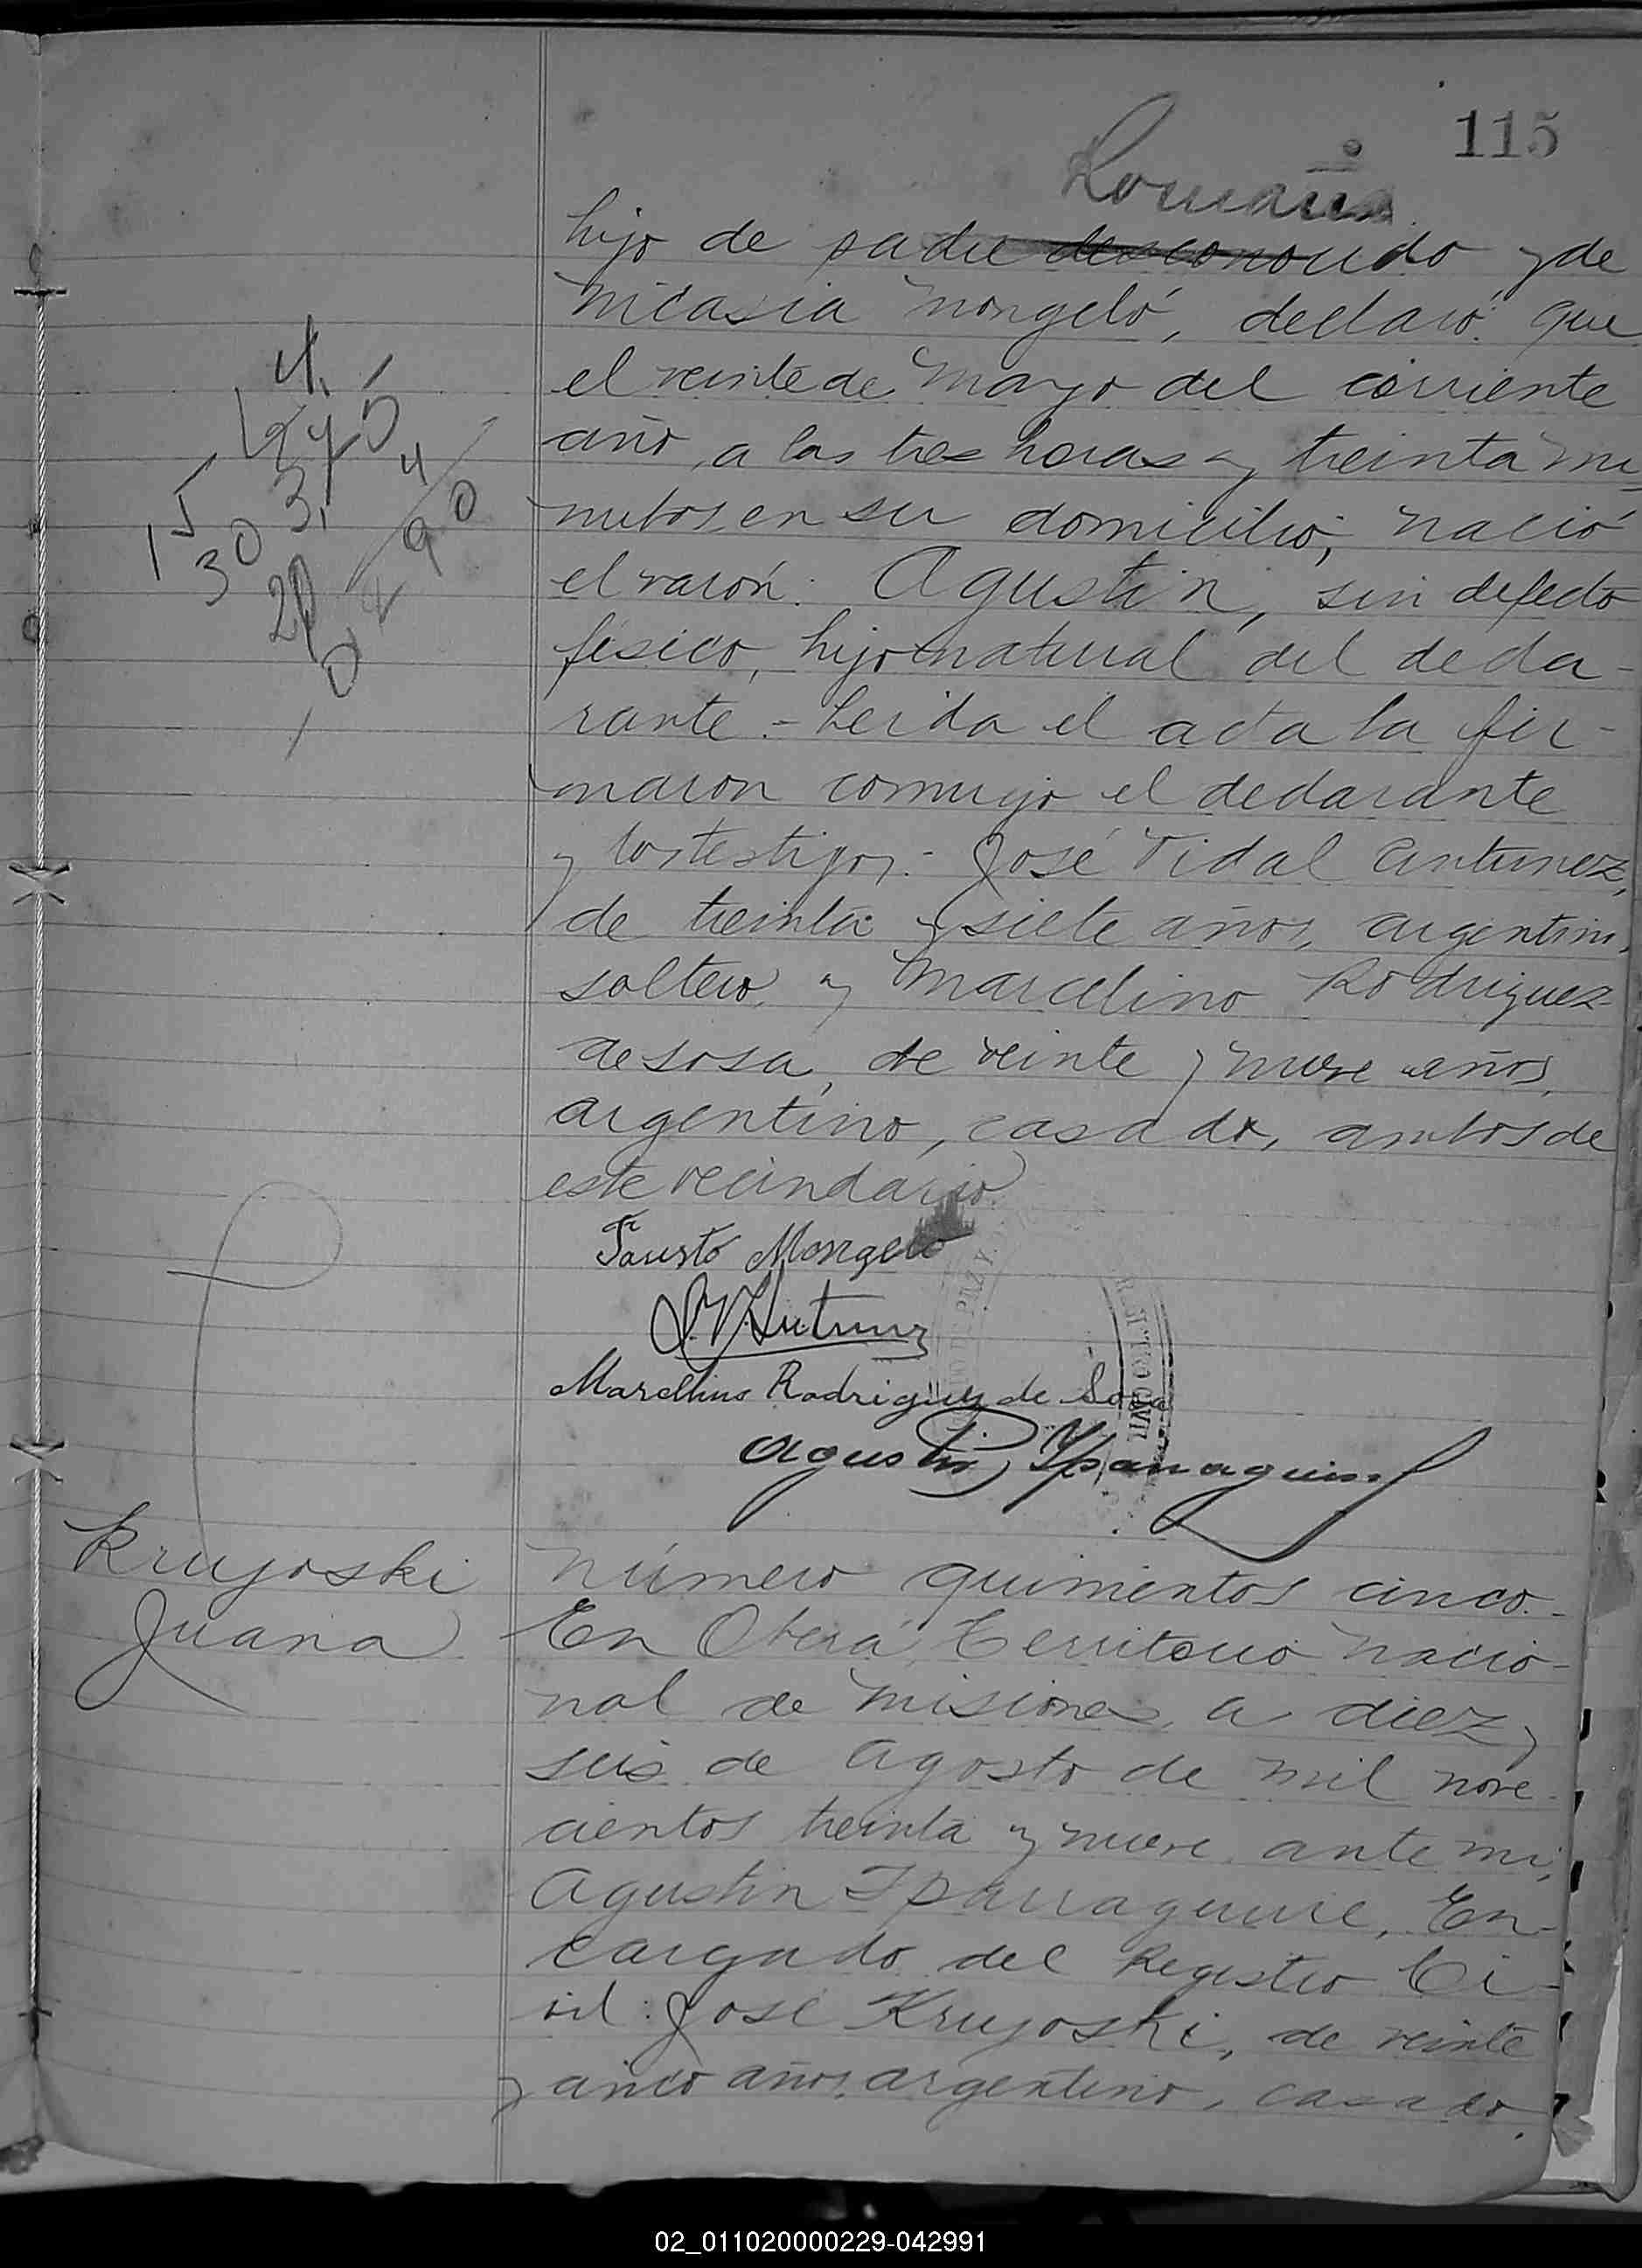 115
hijo de padre desconocido y de
Nicasia Mongeló, declaró: que
el veinte de Mayo del corriente
año, a las tres horas y treinta mi
nutos, en su domicilio, nació
el varón: Agustin, sin defecto
físico, hijo natural del decla-
rante.- Leida el acta la fir-
maron conmigo el declarante
y los testigos:- José Vidal Antunez,
de treinta y siete años, argentino,
soltero y Marcelino Rodriguez
de Sosa, de veinte y nueve años,
argentino, casado, ambos de
este vecindario.
Fausto Mongelo
J.V. Antunez
Marcelino Rodriguez de Sosa
Agustin Yparraguirre
Krujoski
Juana
Número quinientos cinco.-
En Oberá, Territorio Nacio-
nal de Misiones, a diez y
seis de Agosto de mil nove-
cientos treinta y nueve, ante mi,
Agustin Iparraguirre, En-
cargado del Registro Ci-
vil: José Krujoski, de veinte
y cinco años, argentino, casado,
02_011020000229-042991